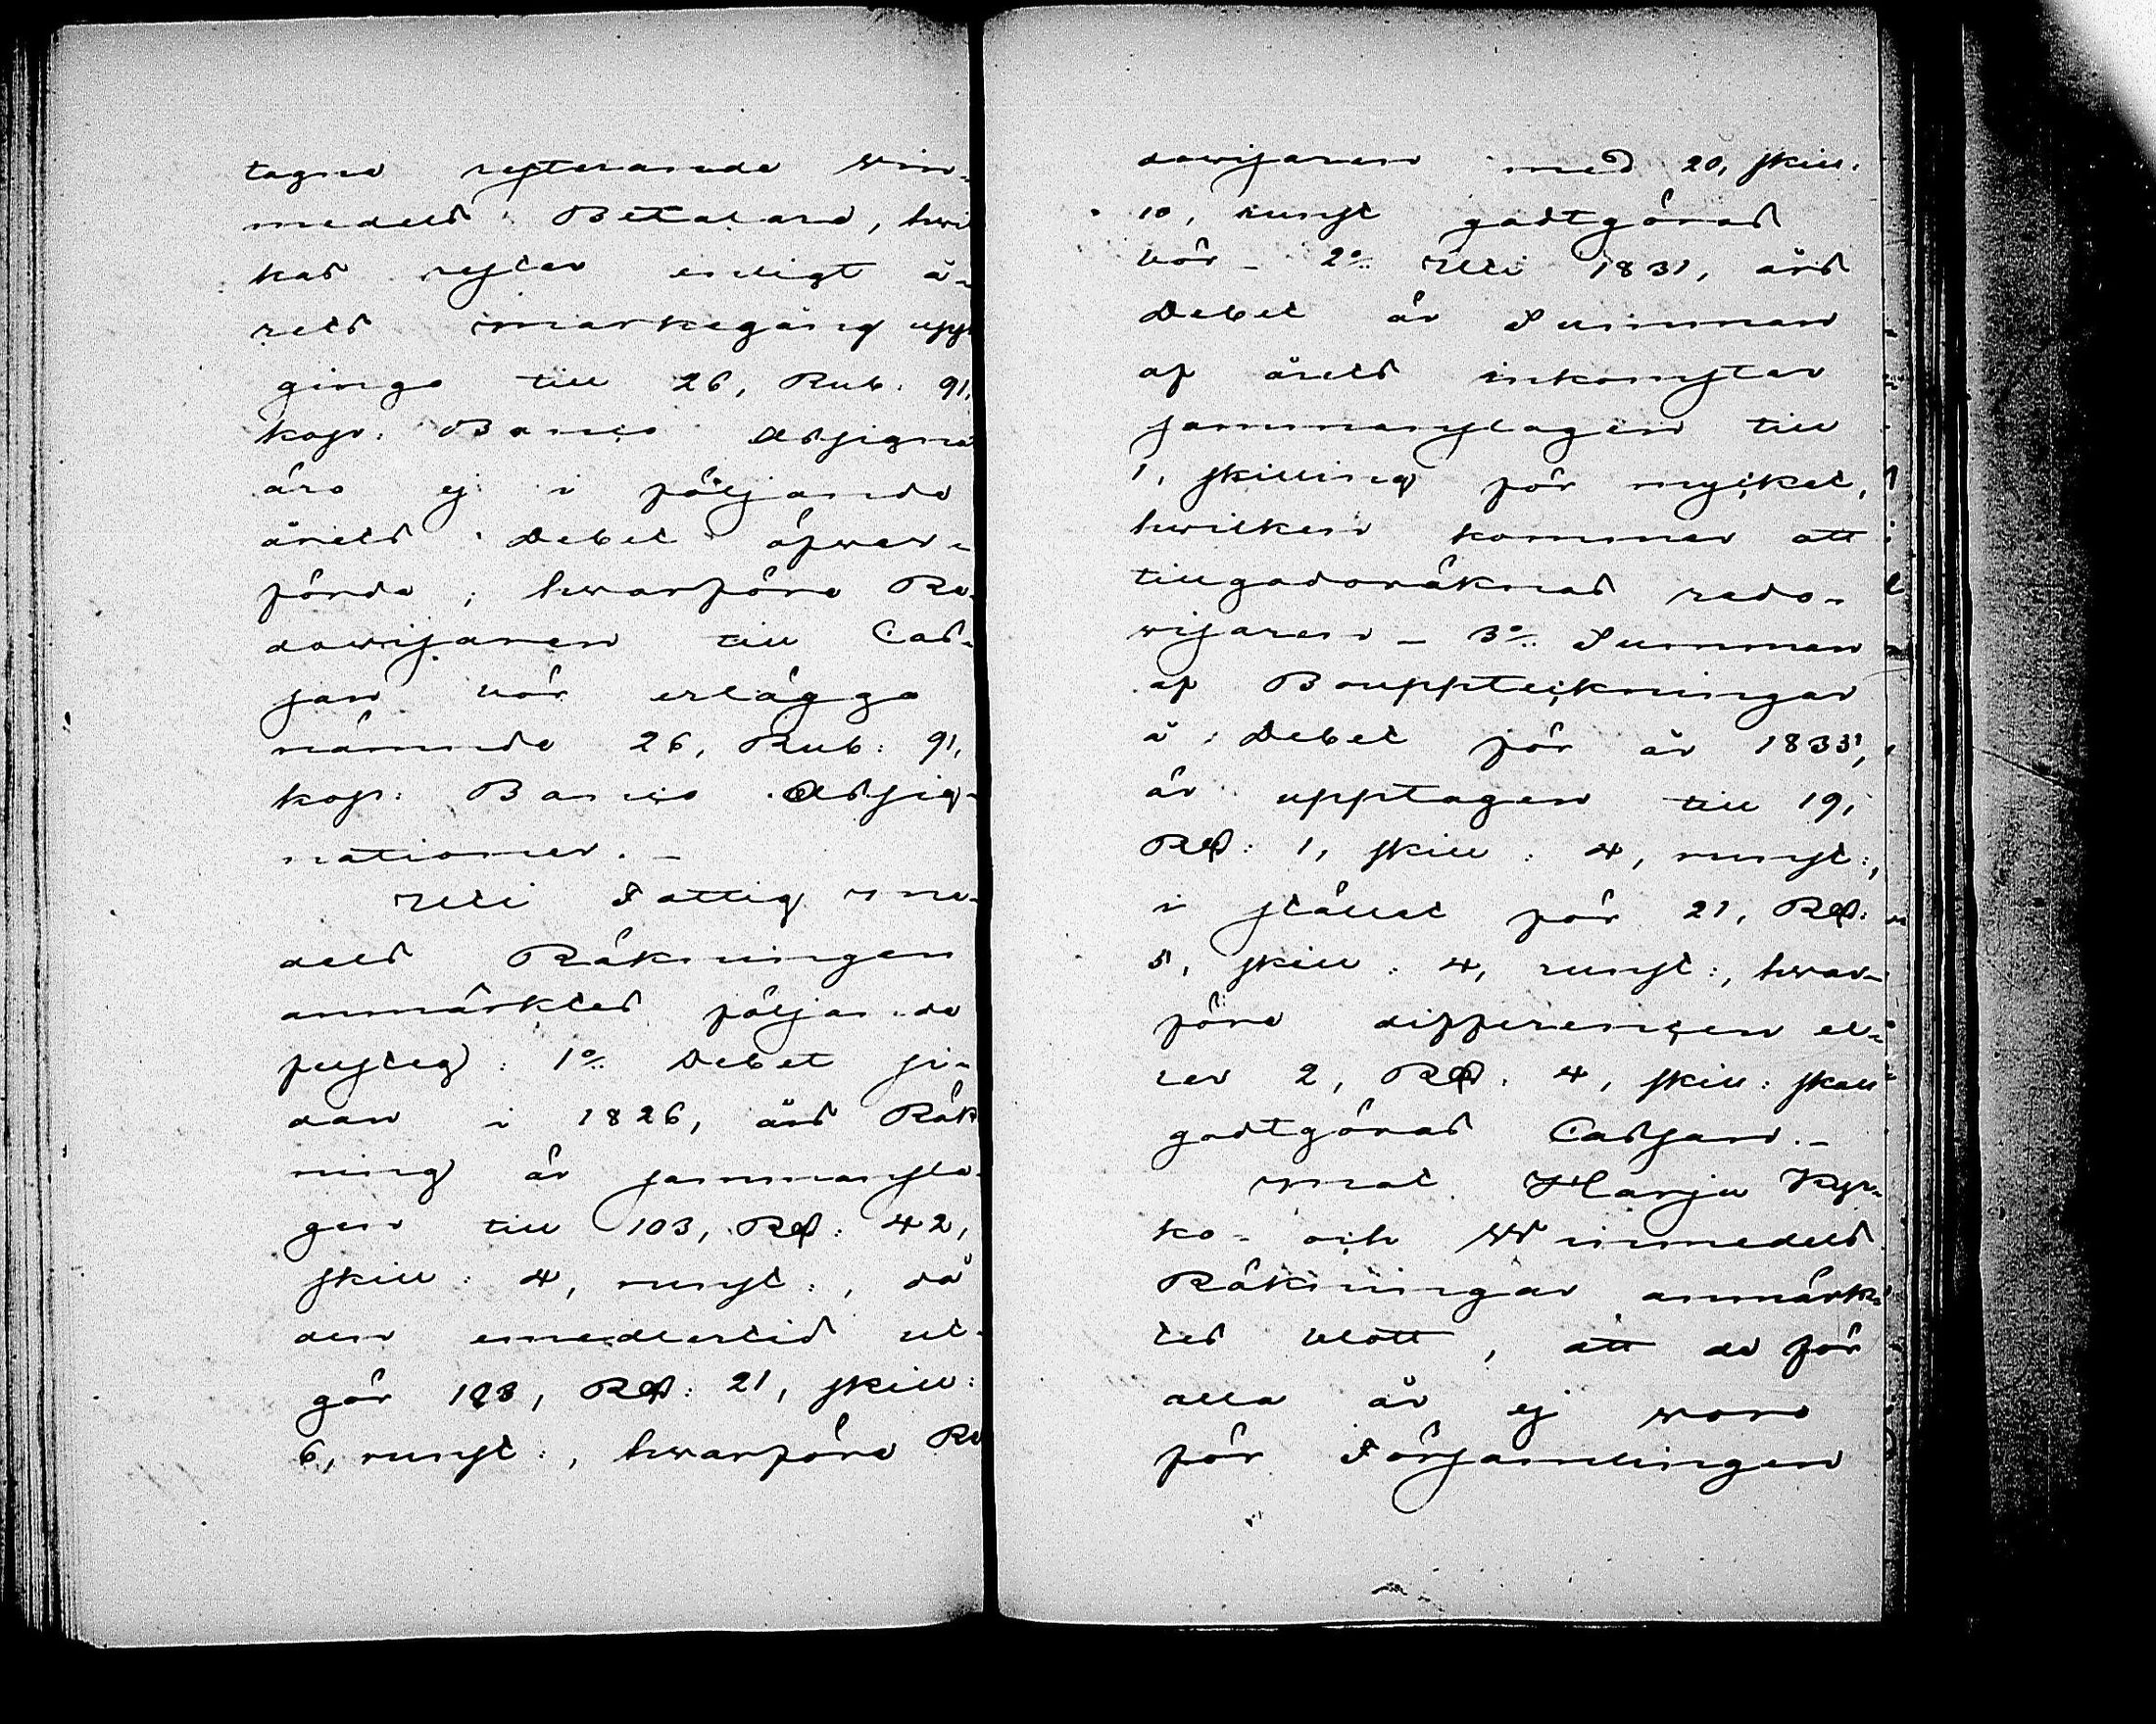 tagne resterande Win-
medels Betalare, hwil
kas rester enligt å-
rets markegång upp-
gingo till 26, Rub: 91,
kop: Banco Assigna
äro ej i följande
årets Debet öfwer-
förda; hwarföre Re-
dowisaren till Cas-
san bör erlägga
nämnde 26, Rub: 91,
kop: Banco Assig-
nationer. –
Uti Fattig me-
dels Räkningen
anmärktes följande
felsteg: 1o Debet si-
dan i 1826, års Räk
ning är sammansla-
gen till 103, Rd: 42,
skill: 4, runst:, då
den emedlertid ut-
gör 103, Rd: 21, skill:
6, runst:, hwarföre Re
dowisaren med 20, skill:
10, runst godtgöras
bör – 2o Uti 1831, års
Debet är Summan
af årets inkomster
sammanslagen till
1, skilling för mycket,
hwilken kommer att
tillgodoräknas redo-
wisaren – 3o Summan
af Bouppteckningar
å Debet för år 1833,
är upptagen till 19,
Rd: 1, skill: 4, runst:,
i stället för 21, Rd:
5, skill: 4, runst:, hwar-
före differencen el-
ler 2, Rd: 4, skill: skall
godtgöras Cassan. –
mot Harju Kyr-
ko- och Winmedels
Räkningar anmärk-
tes blott, att de för
alla år ej woro
för Församlingen